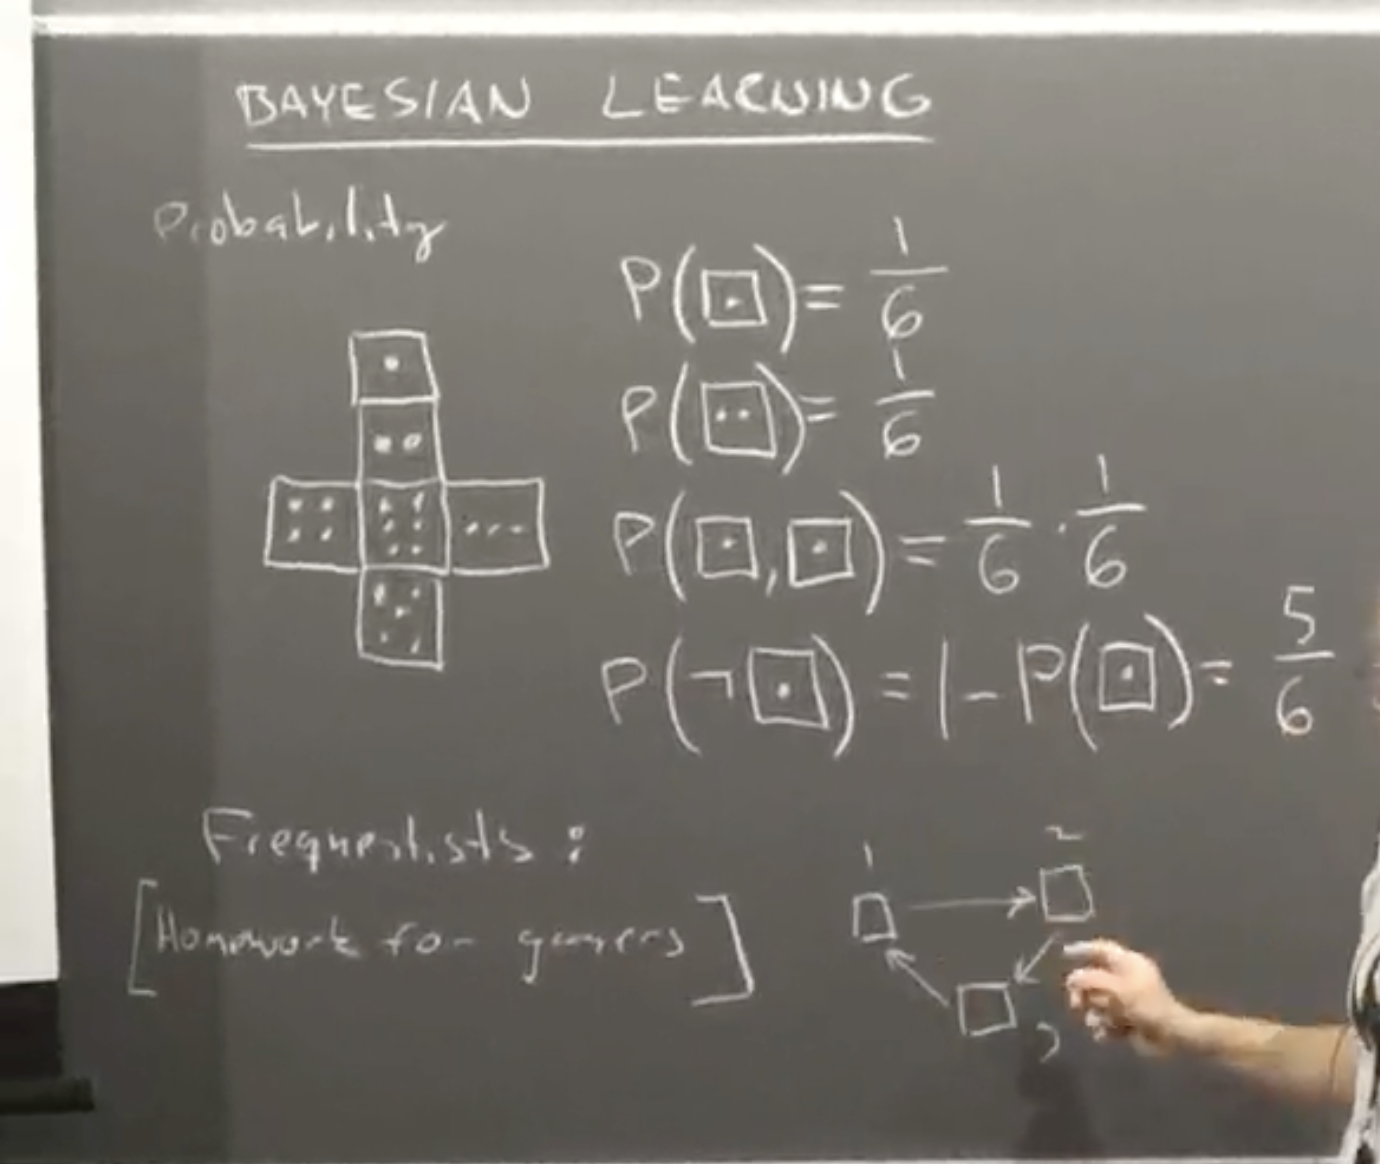 BAYESIAN LEARNING
Probability
P(⚀) = 1/6
P(⚁) = 1/6
P(⚀, ⚀) = 1/6 · 1/6
P(¬⚀) = 1 - P(⚀) = 5/6
Frequentists:
[Homework for gamers]
1
2
3